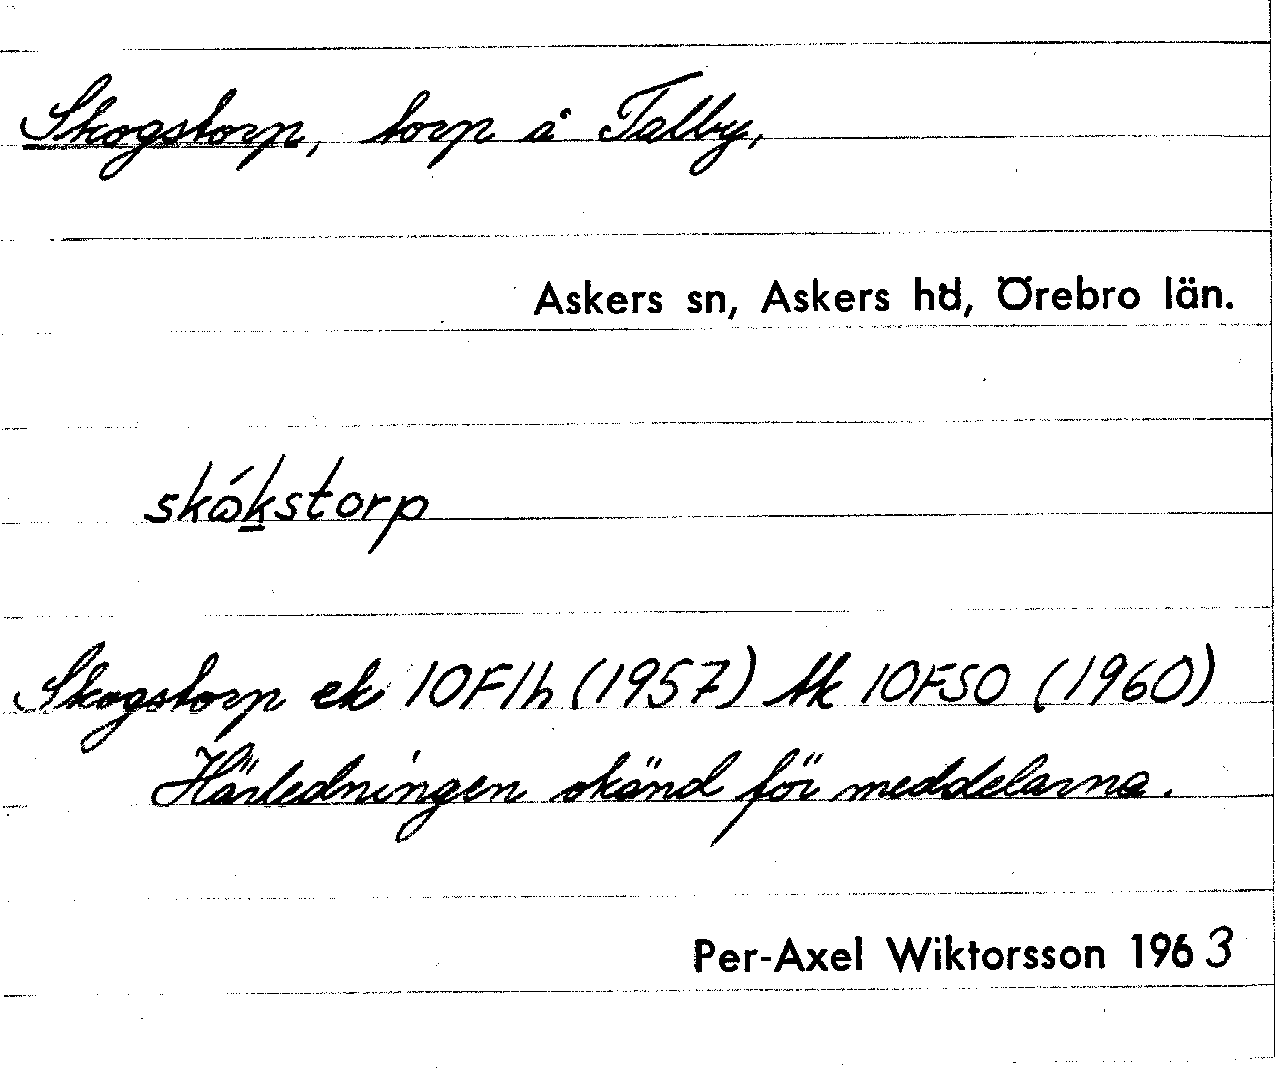 Skogstorp, torp å Talby,
Askers sn, Askers hd, Örebro län.
skɷ́kstorp
Skogstorp ek 10F1h (1957) tk 10FSO (1960)
Härledningen okänd för meddelarna.
Per-Axel Wiktorsson 1963